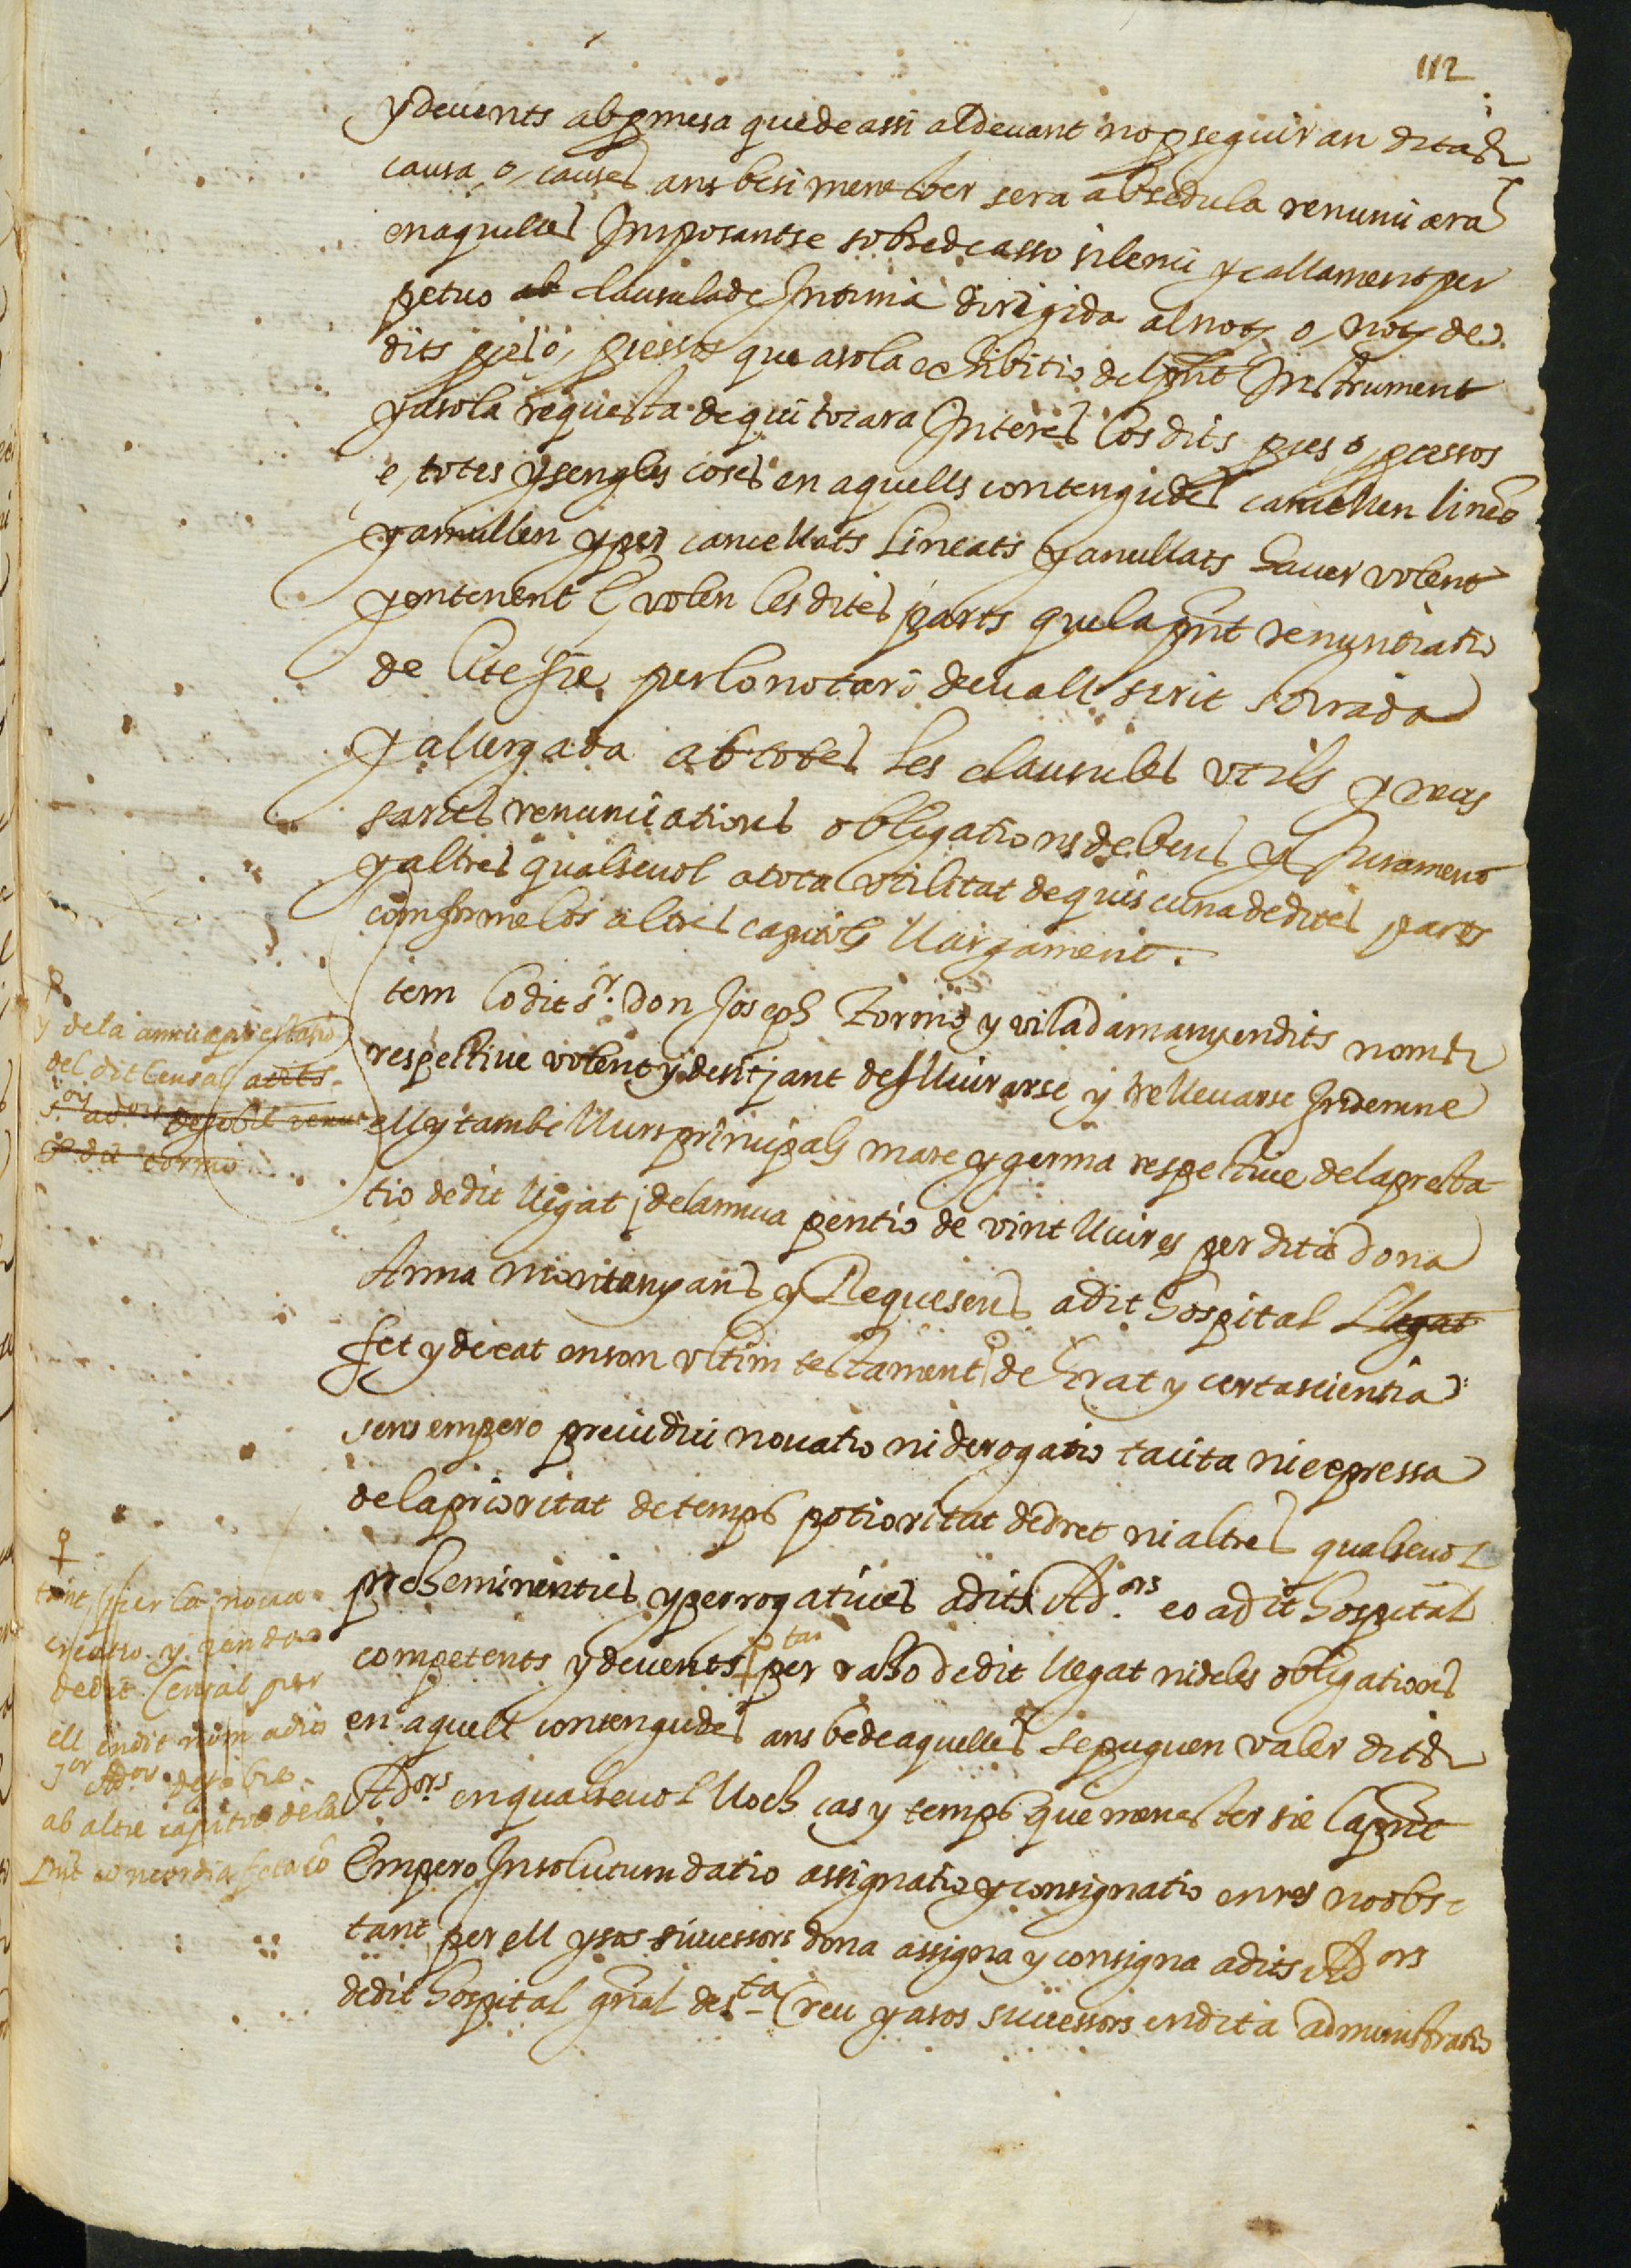 112
y devents ab pmesa que de assi al devant no pseguiran dita
causa, o, causes ans be si menester sera ab sedula renunciara
en aquelles Imposantse sobre de asso silenci y callament per
petuo ab clausula de Intima dirigida al not, o, nots de
dits pces o, pcessos que a sola exhibitio del pnt Instrument
y a sola requesta de qui tocara Interes los dits pces o, pcessos
e, totes y sengles coses en aquells contengudes cancellen lineen
y anullen y per cancellats lineats y anullats haver volent
y ontenent E volen les dites parts que la pnt renuntiatio
de lite sie per lo notari devall scrit
y allargada ab totes les clausules utils y neces
saries renuntiations obligations de bens y Jurament
y altres qualsevol a tota utilitat de quiscuna de dites parts
comforme los altres capitols llargament.
tem lo dit Sr. Don Joseph Tormo y viladamany en dits noms
respective volent y desitjant desllivrarse y rellevarse Indemne
ell y tambe llurs principals mare y germa respective de la presta
tio de dit llegat de la nnua pentio de vint lliures per dita dona
Anna Montanyans y Requesens a dit hospital Llegat
fet y dexat en son ultim testament de grat y certa scientia
sens empero preiudici novatio ni derogatio tacita ni expressa
de la prioritat de temps potioritat de dret ni altres qualsevol
preheminenties y perrogatives a dits Adors eo a dit hospital
competents y devents tan per raho de dit llegat ni de les obligations
en aquell contengudes ans be de aquelles se puguen valer dits
Adors en qualsevol lloch cas y temps que menester sie la pnt
Empero Insolutumdatio assignatio y consignatio en res no obs
tant per ell y sos successors dona assigna y consigna a dits Adors
de dit hospital gnal de Sta Creu y a sos successors en dita administratio
y de la annua prestatio
del dit Censal a dits
Sors adors
de dit tormo
tant per la nova
creatio y venda
de dit Censal per
ell en dit nom a dits
Sors Adors
ab altre capitol de la
pnt concordia